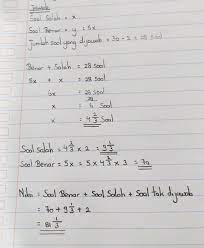 Jawab
Soal Salah = x
Soal Benar = y = 5x
Jumlah soal yang dijawab = 30 - 2 = 28 soal
Benar + Salah = 28 soal
5x + x = 28 soal
6x = 28 soal
x = 28/6 soal
x = 4 2/3 Soal
Soal salah = 4 2/3 x 2 = 9 1/3
Soal Benar = 5x = 5 x 4 2/3 x 3 = 70
Nilai = Soal Benar + Soal Salah + Soal Tak dijawab
= 70 + 9 1/3 + 2
= 81 1/3